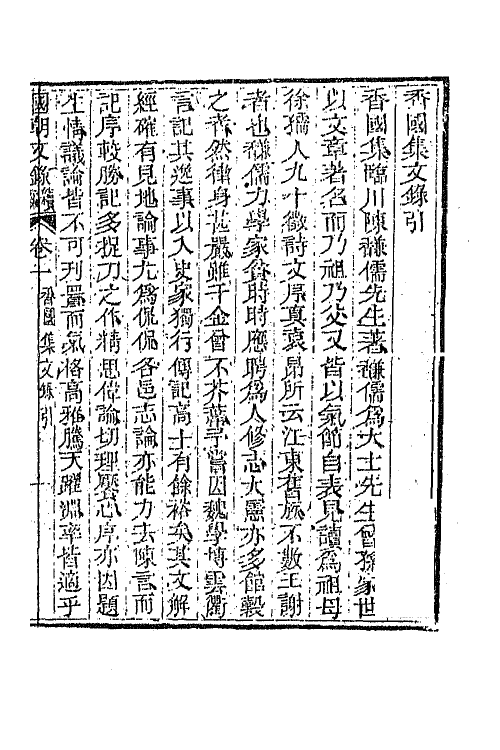 香國集文錄引
香國集臨川陳謙儒先生著謙儒為大士先生曾孫家世
以文章著名而乃祖乃父又皆以氣節自表見讀為祖母
徐孺人九十徵詩文序真袁昂所云江東舊族不數王謝
者也謙儒力學家食時時應聘為人修志大憲亦多館穀
之者然律身甚嚴雖千金曾不芥蔕予嘗因魏學博雲衢
言記其逸事以入史家獨行傳記高士有餘裕矣其文解
經確有見地論事尤為侃侃各邑志論亦能力去陳言而
記序較勝記多捉刀之作精思偉論切理饜心序亦因題
生情議論皆不可刊置而氣格高雅騰天躍淵率皆適乎
國朝文錄 卷一 香國集文錄引 一